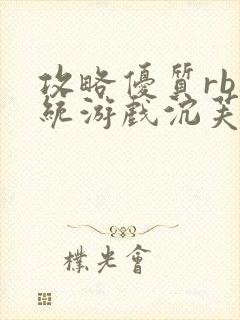 攻略優質rb
統游戲沉芙
樸光會